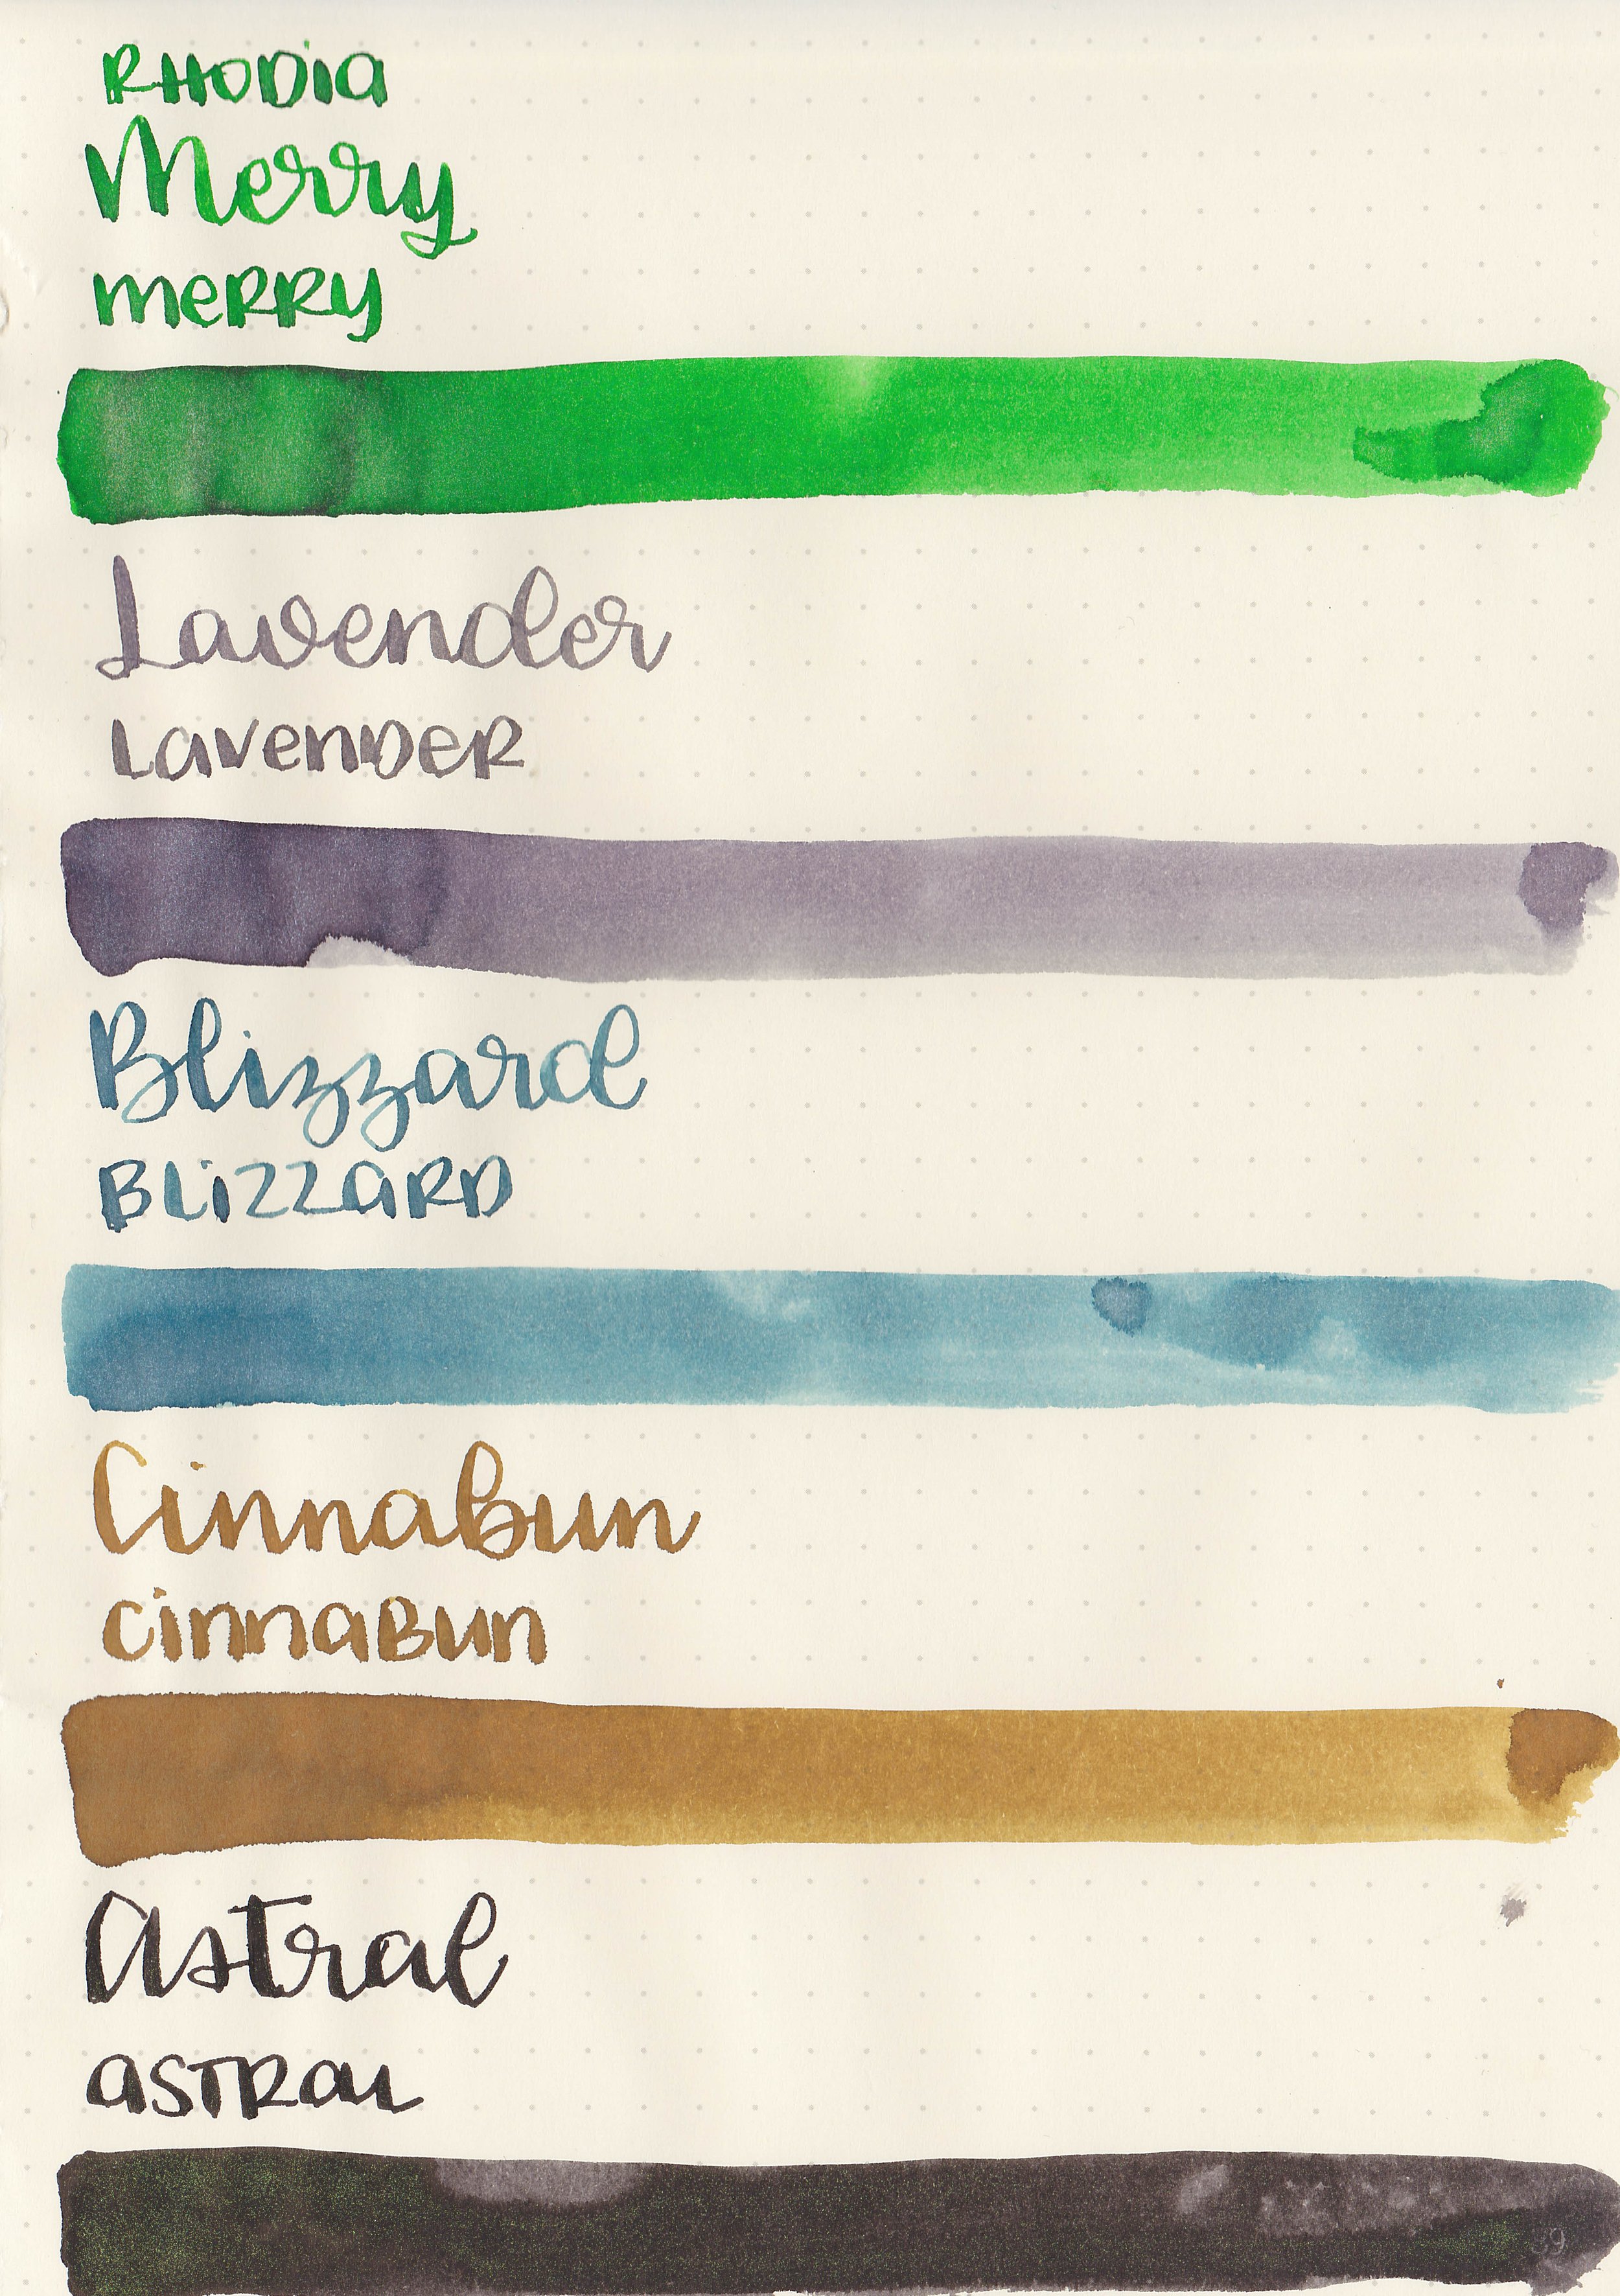 RHODIA
Merry
merry
Lavender
Lavender
Blizzard
BLiZZARD
Cinnabun
cinnabun
Astral
ASTRAL
39